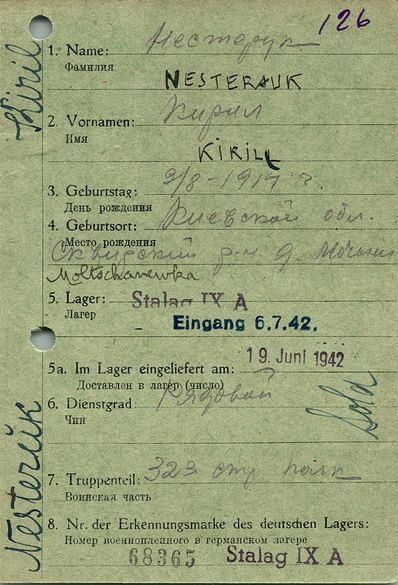 126
Kiril
1. Name: Нестерук
Фамилия
NESTERAUK
2. Vornamen: Кирил
Имя
KIRILL
3. Geburtstag: 9/8-1914 г.
День рождения
4. Geburtsort: Киевской обл.
Место рождения
Сквидский р-н д.
Moltschanewka
5. Lager: Stalag IX A
Лагер
Eingang 6.7.42.
19. Juni 1942
5a. Im Lager eingeliefert am:
Доставлен в лагер (число)
6. Dienstgrad: Рядовой
Чин
Sola
Nesterŭk
7. Truppenteil: 323 стр полк
Воинская часть
8. Nr. der Erkennungsmarke des deutschen Lagers:
Номер военнопленного в германском лагере
68365 Stalag IX A